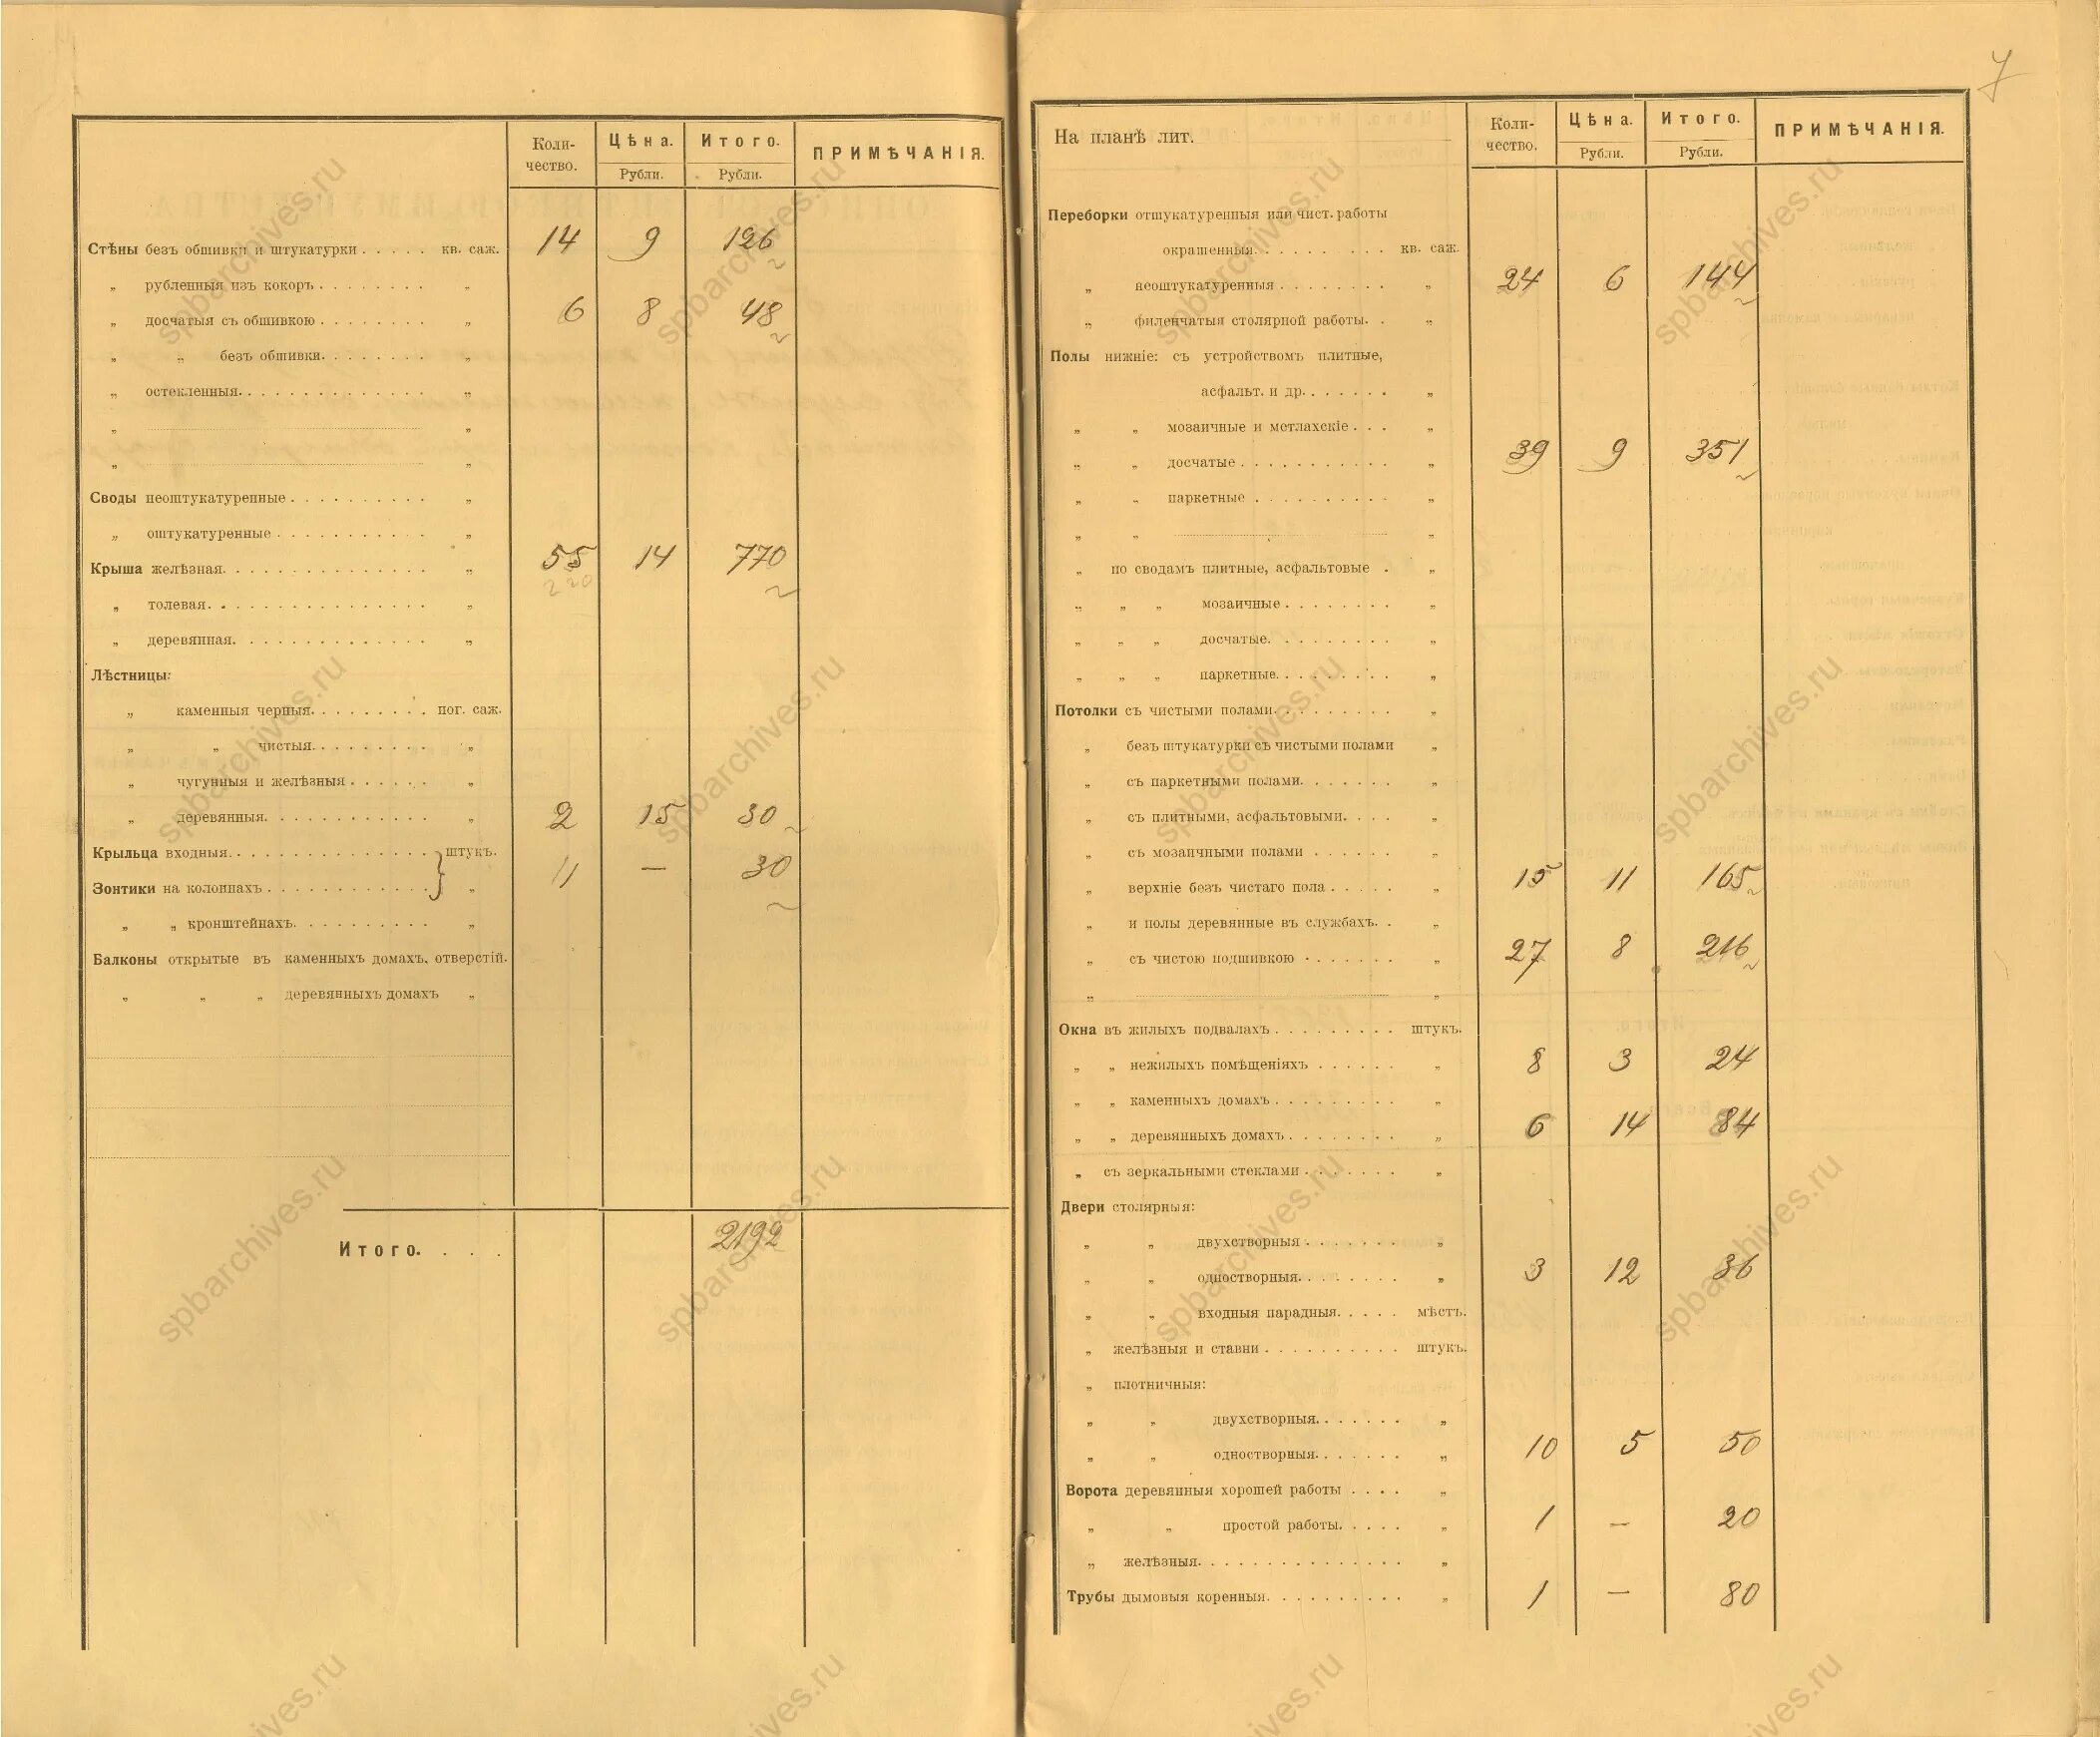 7
Коли-чество. Цѣна. Рубли. Итого. Рубли. ПРИМѢЧАНІЯ.
Стѣны безъ обшивки и штукатурки . . . . . кв. саж. 14 9 126
„ рубленныя изъ кокоръ . . . . . . . . „
„ досчатыя съ обшивкою . . . . . . . . „ 6 8 48
„ „ безъ обшивки. . . . . . . . „
„ остекленныя. . . . . . . . . . . . . . „
„ „
„ „
Своды неоштукатуренные . . . . . . . . . . „
„ оштукатуренные . . . . . . . . . . . „
Крыша желѣзная. . . . . . . . . . . . . . . „ 55 14 770
220
„ толевая. . . . . . . . . . . . . . . . „
„ деревянная. . . . . . . . . . . . . . „
Лѣстницы:
„ каменныя черныя. . . . . . . . . пог. саж.
„ „ чистыя. . . . . . . . . „
„ чугунныя и желѣзныя . . . . . . „
„ деревянныя. . . . . . . . . . . . „ 2 15 30
Крыльца входныя. . . . . . . . . . . . . . . штукъ. 11 — 30
Зонтики на колоннахъ . . . . . . . . . . . . „
„ „ кронштейнахъ. . . . . . . . . . „
Балконы открытые въ каменныхъ домахъ. отверстій.
„ „ „ деревянныхъ домахъ „
Итого. . . . 2192
На планѣ лит. Коли-чество. Цѣна. Рубли. Итого. Рубли. ПРИМѢЧАНІЯ.
Переборки отшукатуренныя или чист. работы
окрашенныя. . . . . . . . . . кв. саж.
„ неоштукатуренныя . . . . . . . . „ 24 6 144
„ филенчатыя столярной работы. . „
Полы нижніе: съ устройствомъ плитные,
асфальт. и др. . . . . . . „
„ „ мозаичные и метлахскіе . . . „
„ „ досчатые . . . . . . . . . . . „ 39 9 351
„ „ паркетные . . . . . . . . . . „
„ „ „
„ по сводамъ плитные, асфальтовые . „
„ „ „ мозаичные . . . . . . . . „
„ „ „ досчатые. . . . . . . . . „
„ „ „ паркетные. . . . . . . . . „
Потолки съ чистыми полами. . . . . . . . . „
„ безъ штукатурки съ чистыми полами „
„ съ паркетными полами. . . . . . . „
„ съ плитными, асфальтовыми. . . . „
„ съ мозаичными полами . . . . . . „
„ верхніе безъ чистаго пола . . . . . „ 15 11 165
„ и полы деревянные въ службахъ. . „
„ съ чистою подшивкою . . . . . . . „ 27 8 216
„ „
Окна въ жилыхъ подвалахъ . . . . . . . . . штукъ.
„ „ нежилыхъ помѣщеніяхъ . . . . . . „ 8 3 24
„ „ каменныхъ домахъ . . . . . . . . . „
„ „ деревянныхъ домахъ . . . . . . . . „ 6 14 84
„ съ зеркальными стеклами . . . . . . . „
Двери столярныя:
„ „ двухстворныя . . . . . . . „
„ „ одностворныя. . . . . . . . „ 3 12 36
„ „ входныя парадныя. . . . . мѣстъ.
„ желѣзныя и ставни . . . . . . . . . . штукъ.
„ плотничныя:
„ „ двухстворныя. . . . . . . „
„ „ одностворныя. . . . . . . „ 10 5 50
Ворота деревянныя хорошей работы . . . . „
„ „ простой работы. . . . . „ 1 — 20
„ желѣзныя. . . . . . . . . . . . . . . . „
Трубы дымовыя коренныя. . . . . . . . . . „ 1 — 80
spbarchives.ru